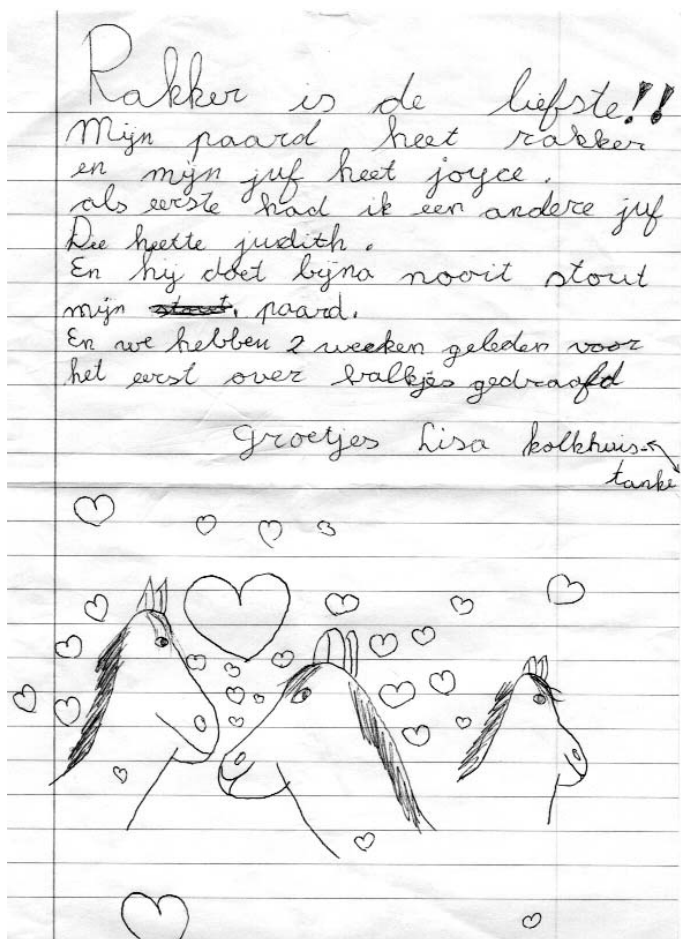 Rakker is de liefste!!
Mijn paard heet rakker
en mijn juf heet joyce.
als eerste had ik een andere juf
Die heette judith.
En hij doet bijna nooit stout
mijn stout. paard.
En we hebben 2 weeken geleden voor
het eerst over balkjes gedraafd
groetjes Lisa kolkhuis-
tanke